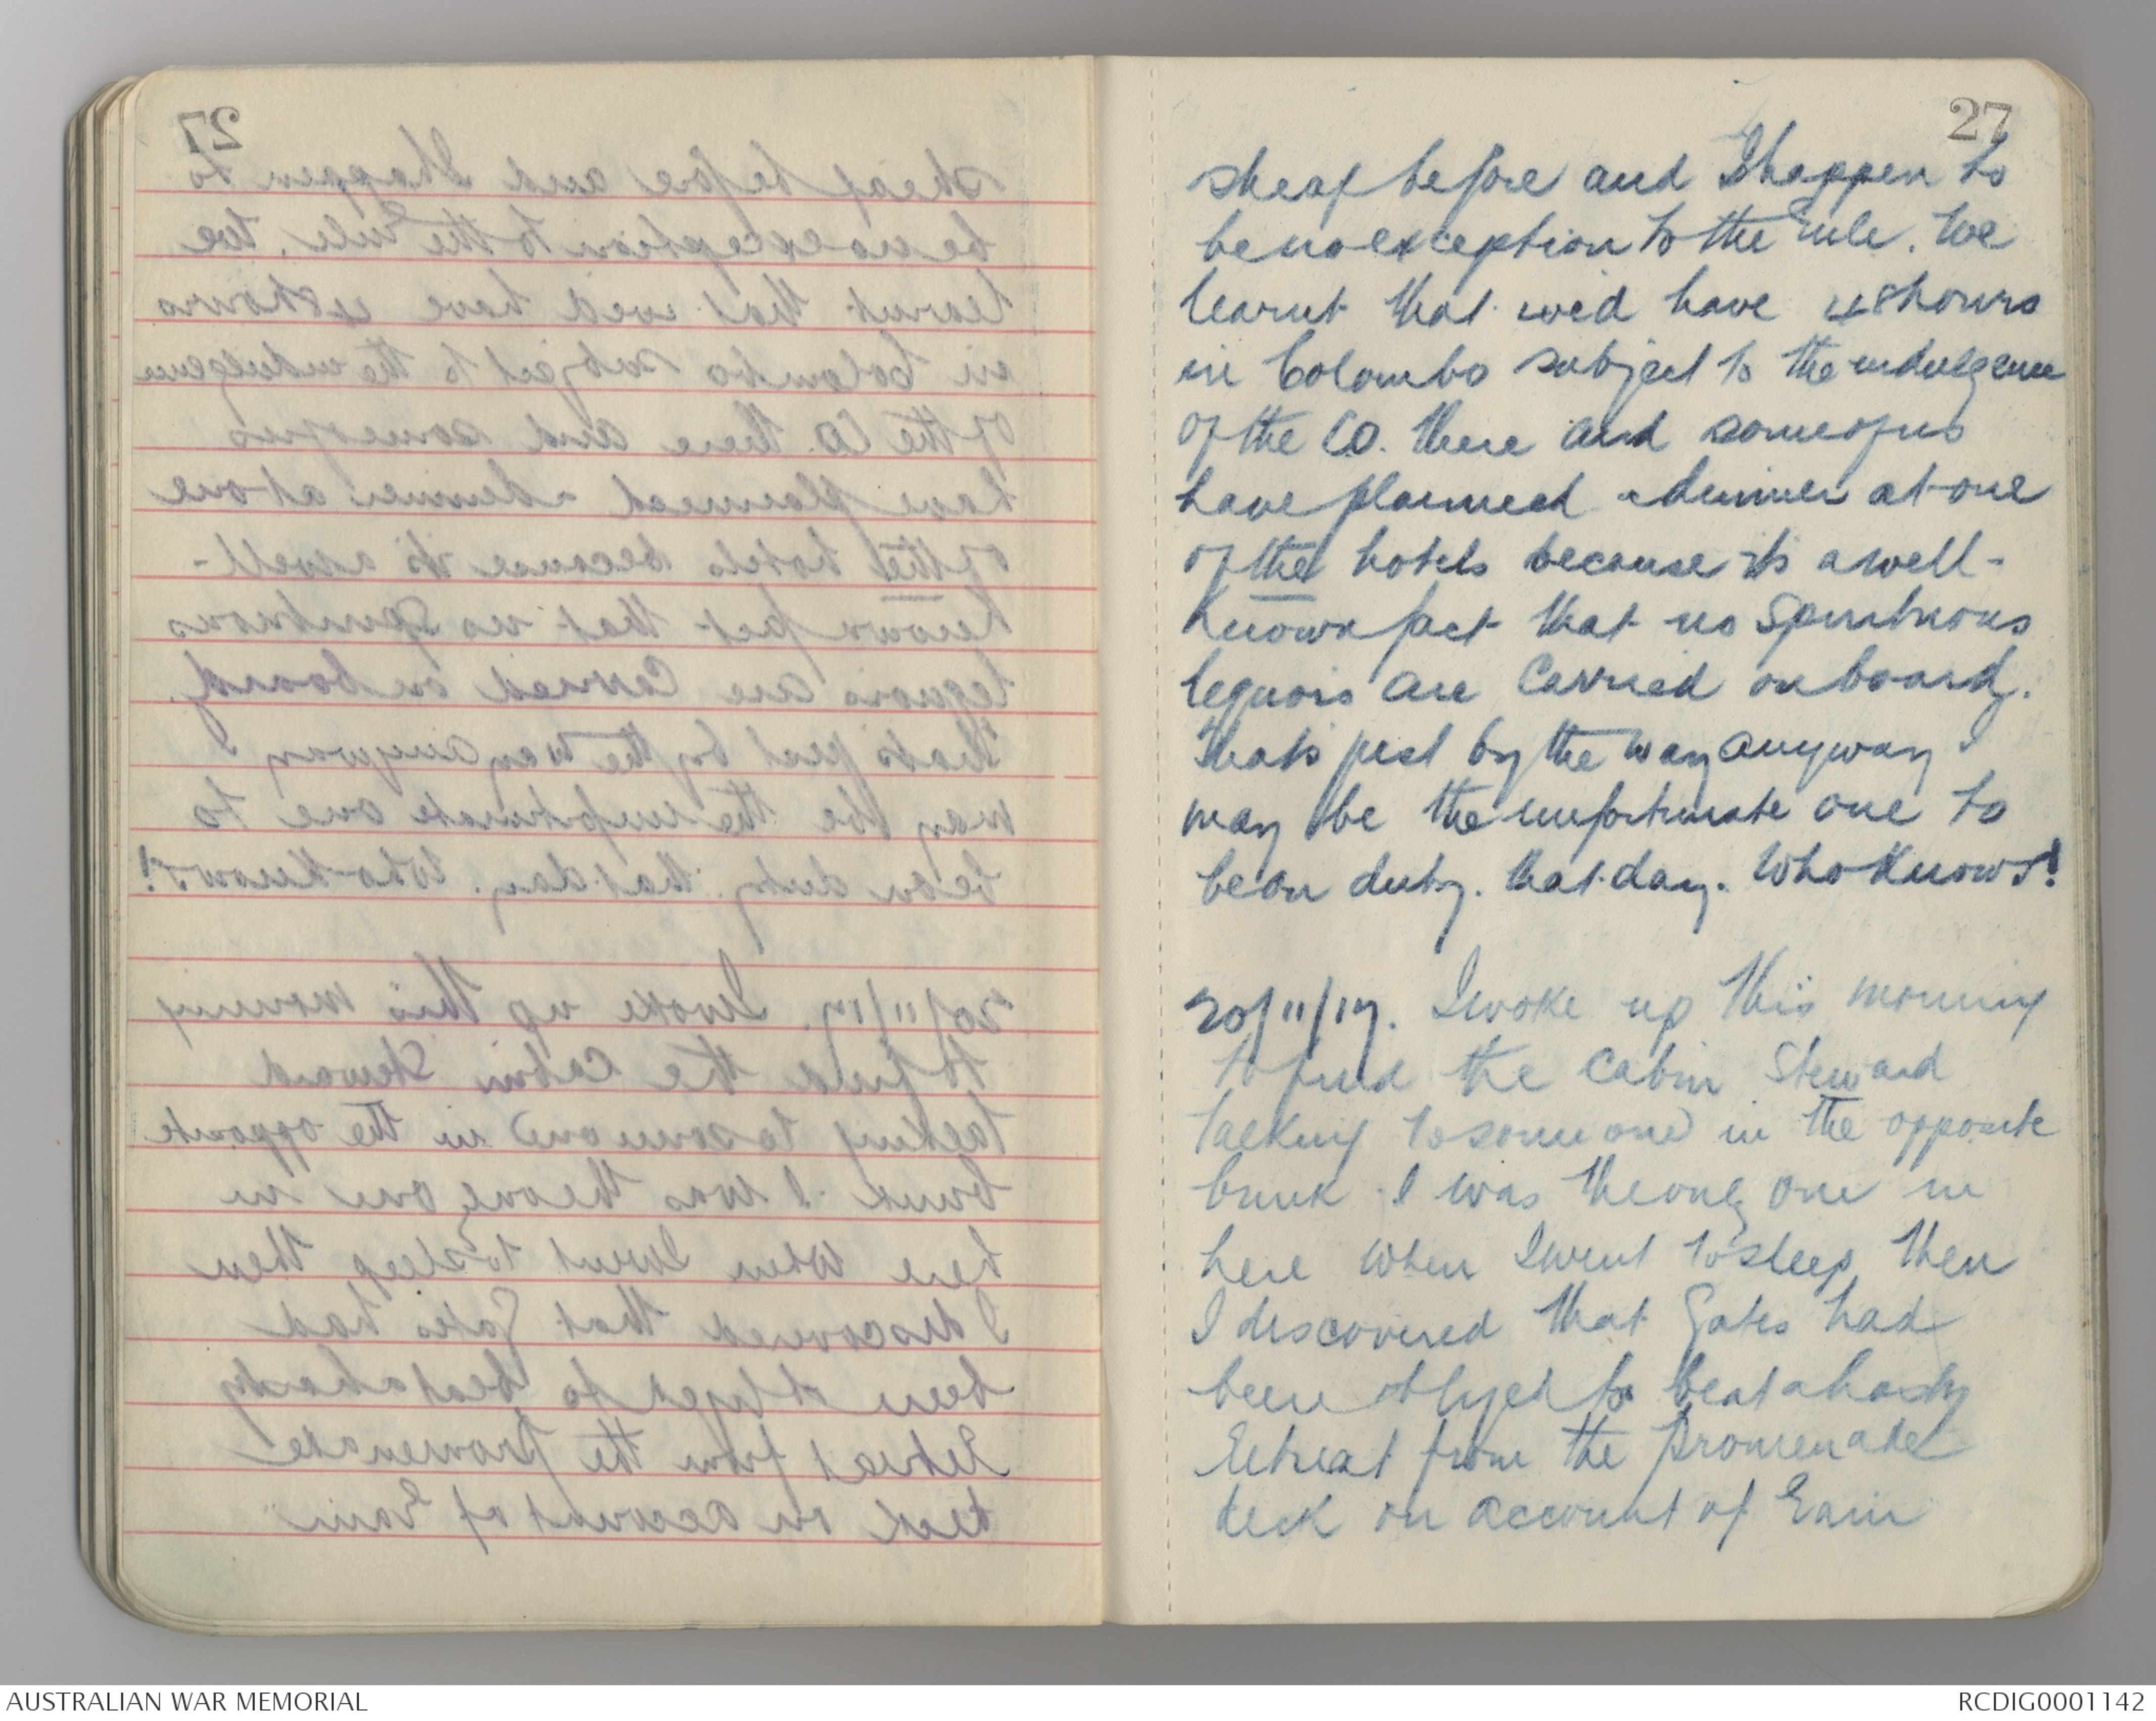 27
sheaf before and I happen to
be no exception to the rule. We
learnt that we'd have 48 hours
in Colombo subject to the indulgence
of the CO. there and some of us
have planned a dinner at one
of the hotels because it's a well-
known fact that no spirituous
lequors are carried on board.
That's just by the way anyway I
may be the unfortunate one to
be on duty. that day. Who Knows!
20/11/17. I woke up this morning
to find the cabin steward
talking to someone in the opposite
bunk. I was the only one in
here when I went to sleep, then
I discovered that Gates had
been obliged to beat a hasty
retreat from the promenade
deck on account of rain
AUSTRALIAN WAR MEMORIAL
RCDIG0001142